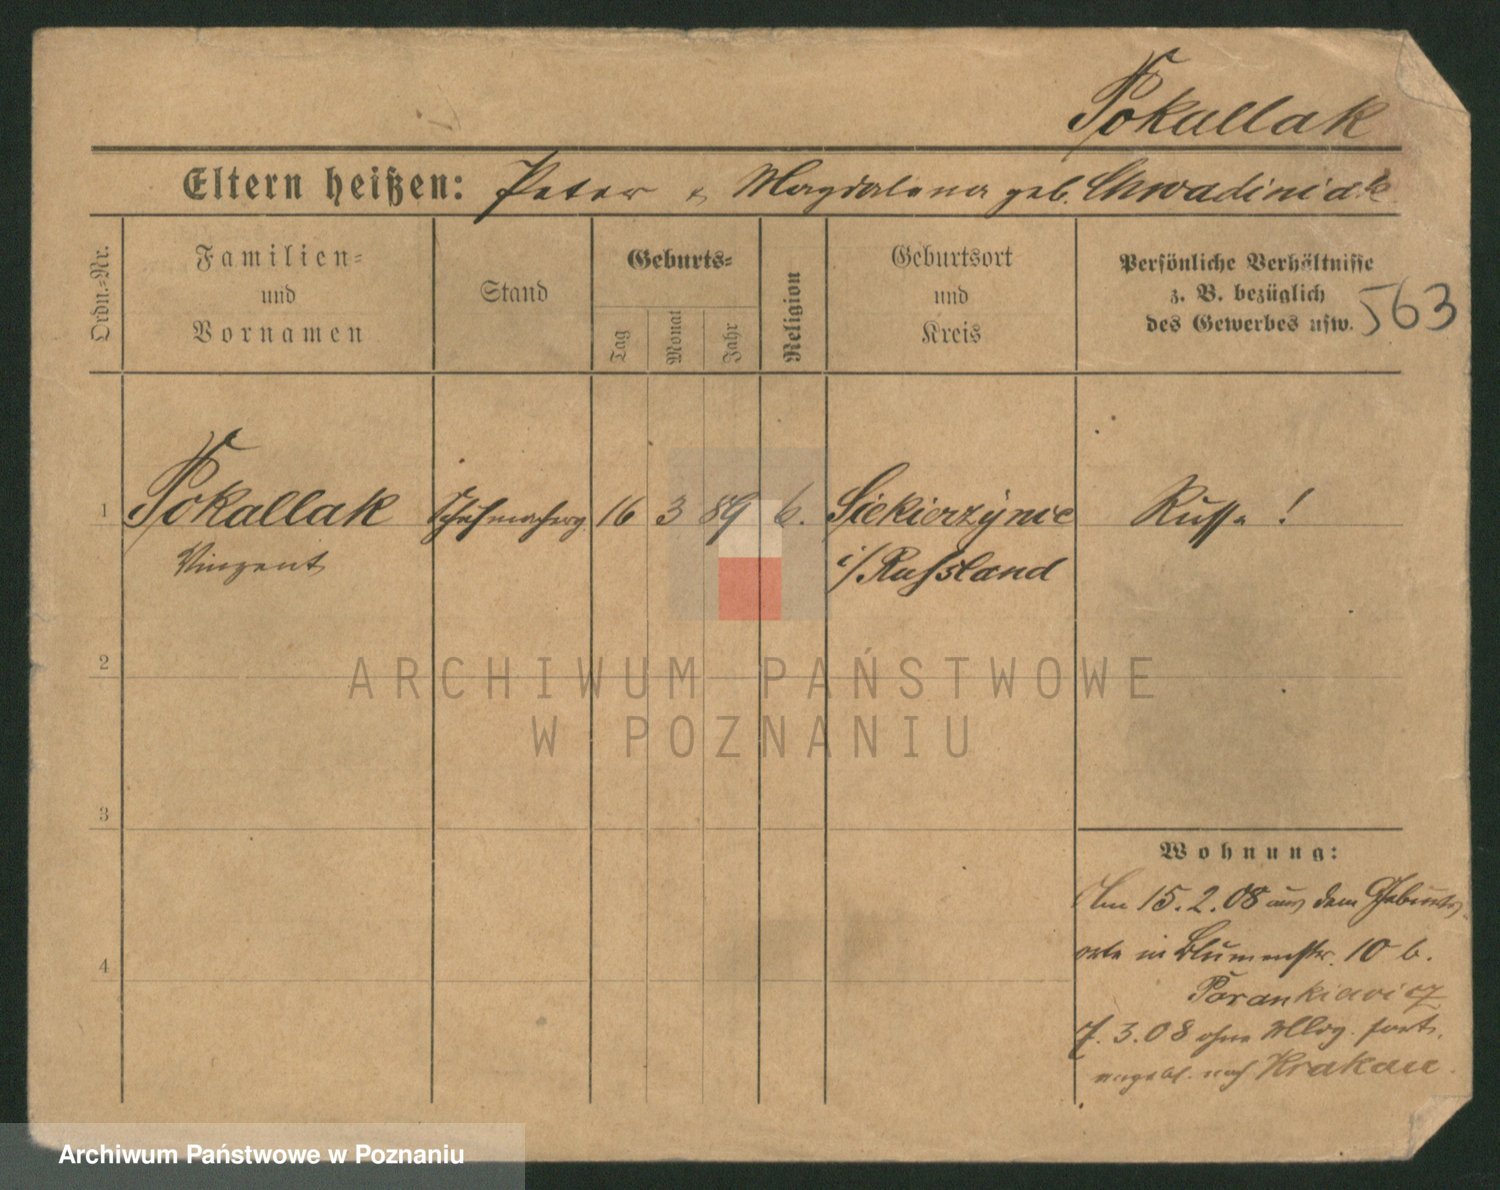 Pokallak
Eltern heißen: Peter u Magdalena geb. Chwadiniak
Ordn.-Nr.
Familien-
und
Vornamen
Stand
Geburts-
Tag
Monat
Jahr
Religion
Geburtsort
und
Kreis
Persönliche Verhältnisse
z. B. bezüglich
des Gewerbes usw.
563
1 Pokallak 16 3 89 k. Siekierzynie Russe !
Vinzent i/Russland
2
3
4
Wohnung:
Am 15.2.08 aus dem Geburts-
orte in Blumenstr. 10 b.
Porankiewicz
7.3.08 ohne Mldg. fort,
angebl. nach Krakau.
ARCHIWUM PAŃSTWOWE
W POZNANIU
Archiwum Państwowe w Poznaniu